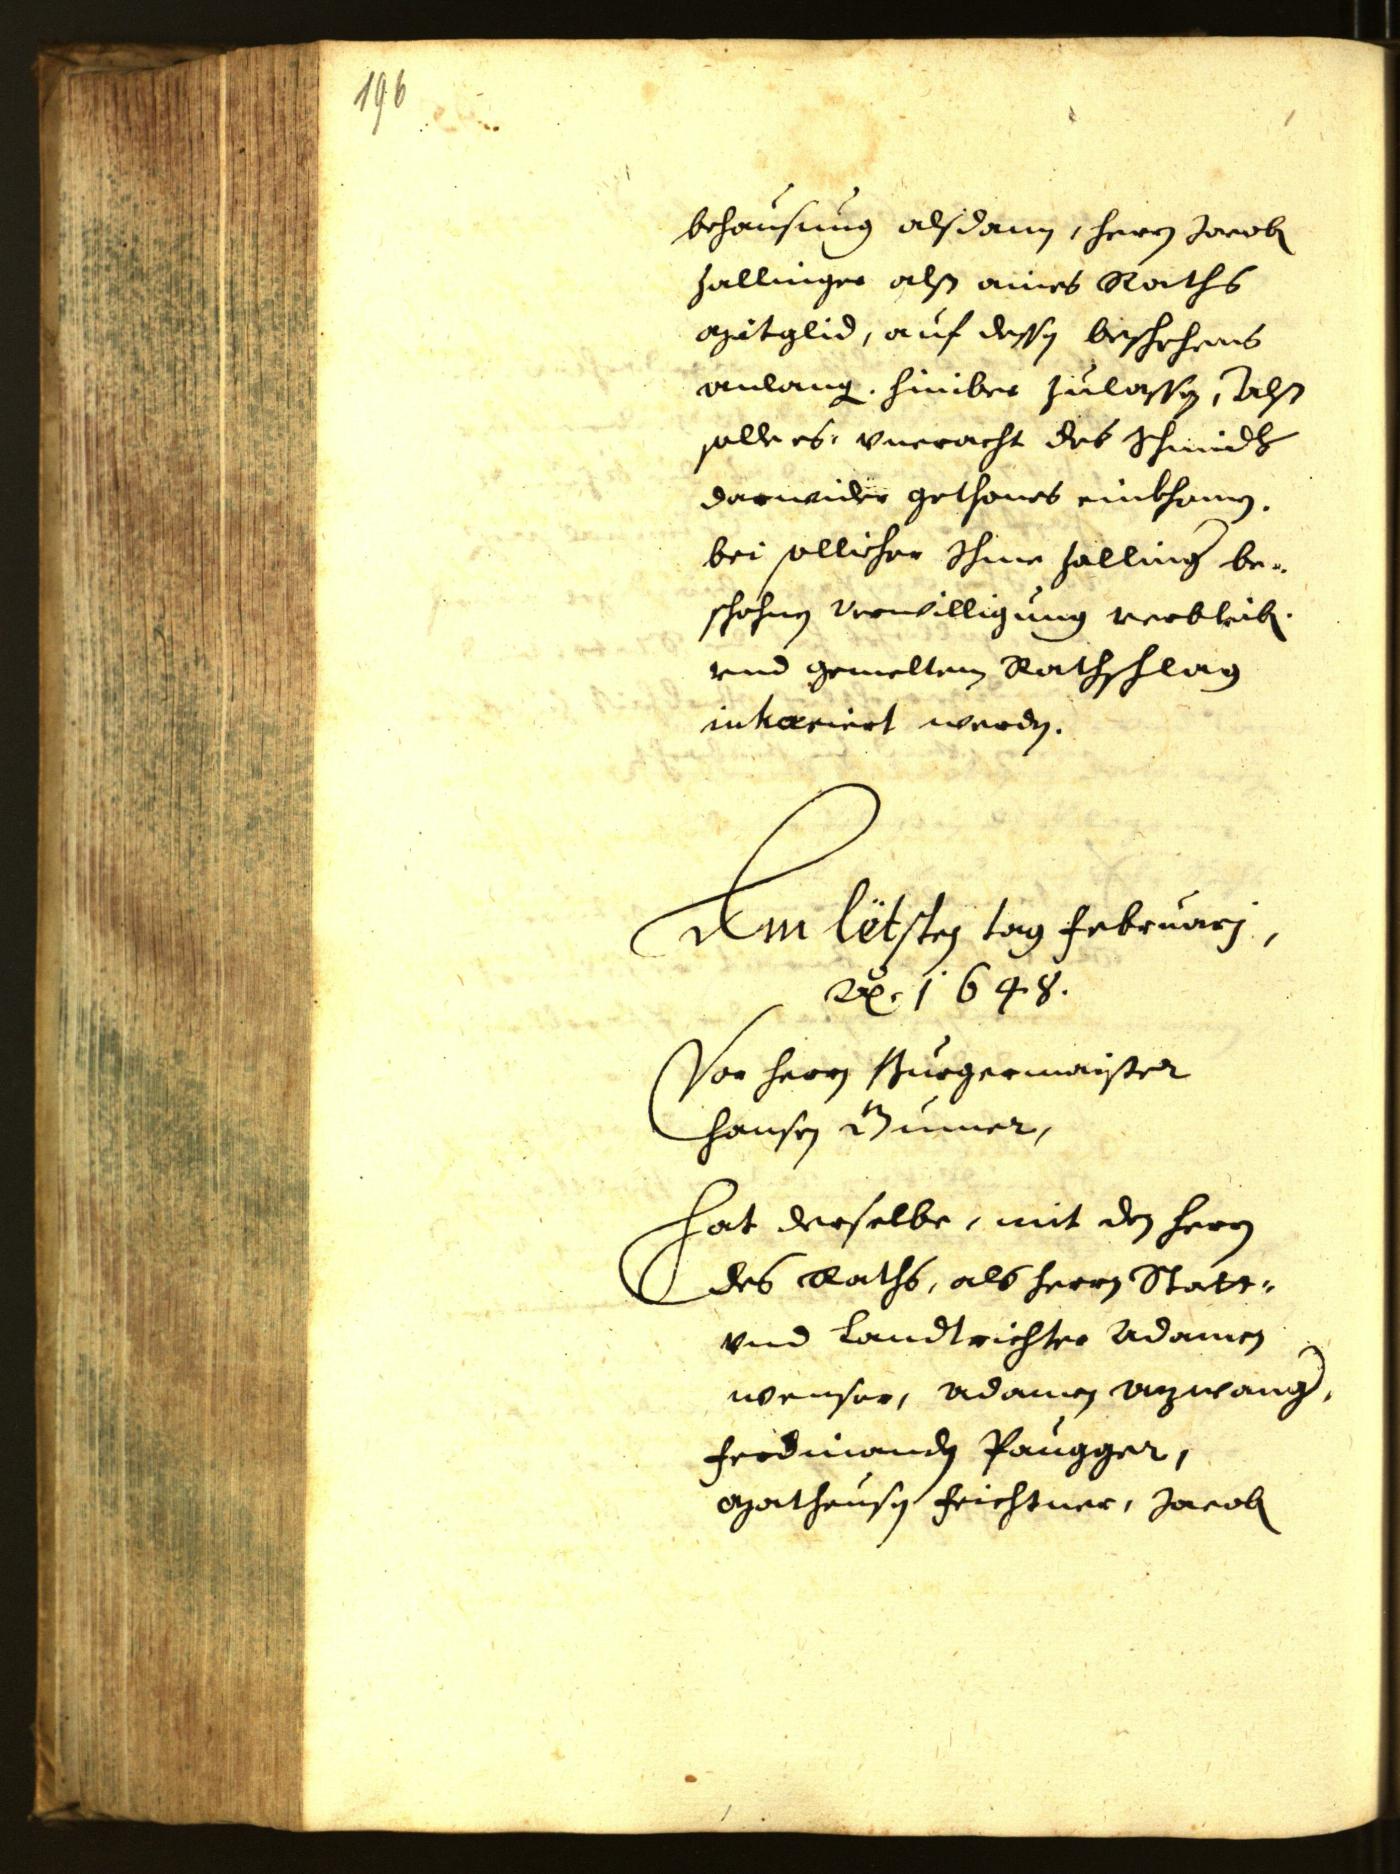 196
behausung alsdann, herrn Jacob
Zallinger alß aines Raths
Mitglid, auf dessen beschehens
anlang. hinüber zulassen, Alß
solle es, vneracht des Schmidts
darwider gethones einkhomen.
bei sollicher Ihme Zalling. be-
schehnen Verwilligung verbleib.
vnd gemeltem Rathschlag
inhæriert werden.
Am letsten tag Februarj,
Ao. 1648.
Vor herrn Burgermaister
Hansen Gumer,
Hat derselbe, mit den herrn
des Raths, als herrn Statt-
vnd Landtrichter Adamen
Wenser, Adamen Azwang.
Ferdinanden Paugger,
Matheusen Feichtner, Jacob